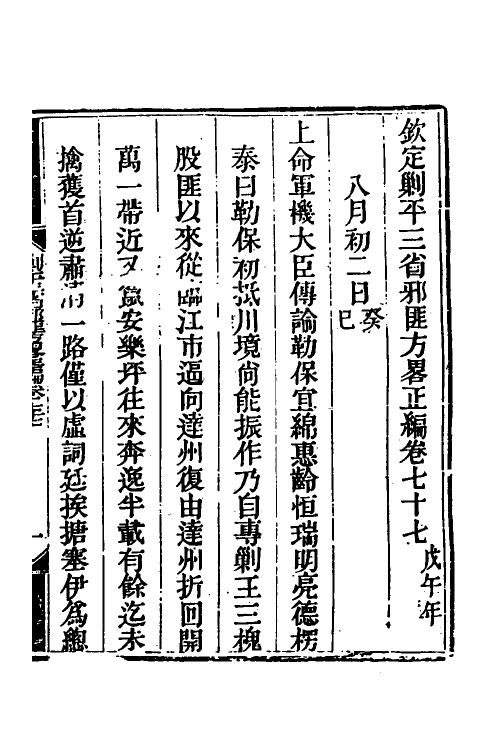 欽定剿平三省邪匪方畧正編卷七十七戊午年
八月初二日癸巳
上命軍機大臣傳諭勒保宜綿惠齡恒瑞明亮德楞
泰曰勒保初抵川境尙能振作乃自專剿王三槐
股匪以來從臨江市逼向達州復由達州折回開
萬一帶近又竄安樂坪往來奔逸半載有餘迄未
擒獲首逆肅淸一路僅以虛詞延挨搪塞伊爲總